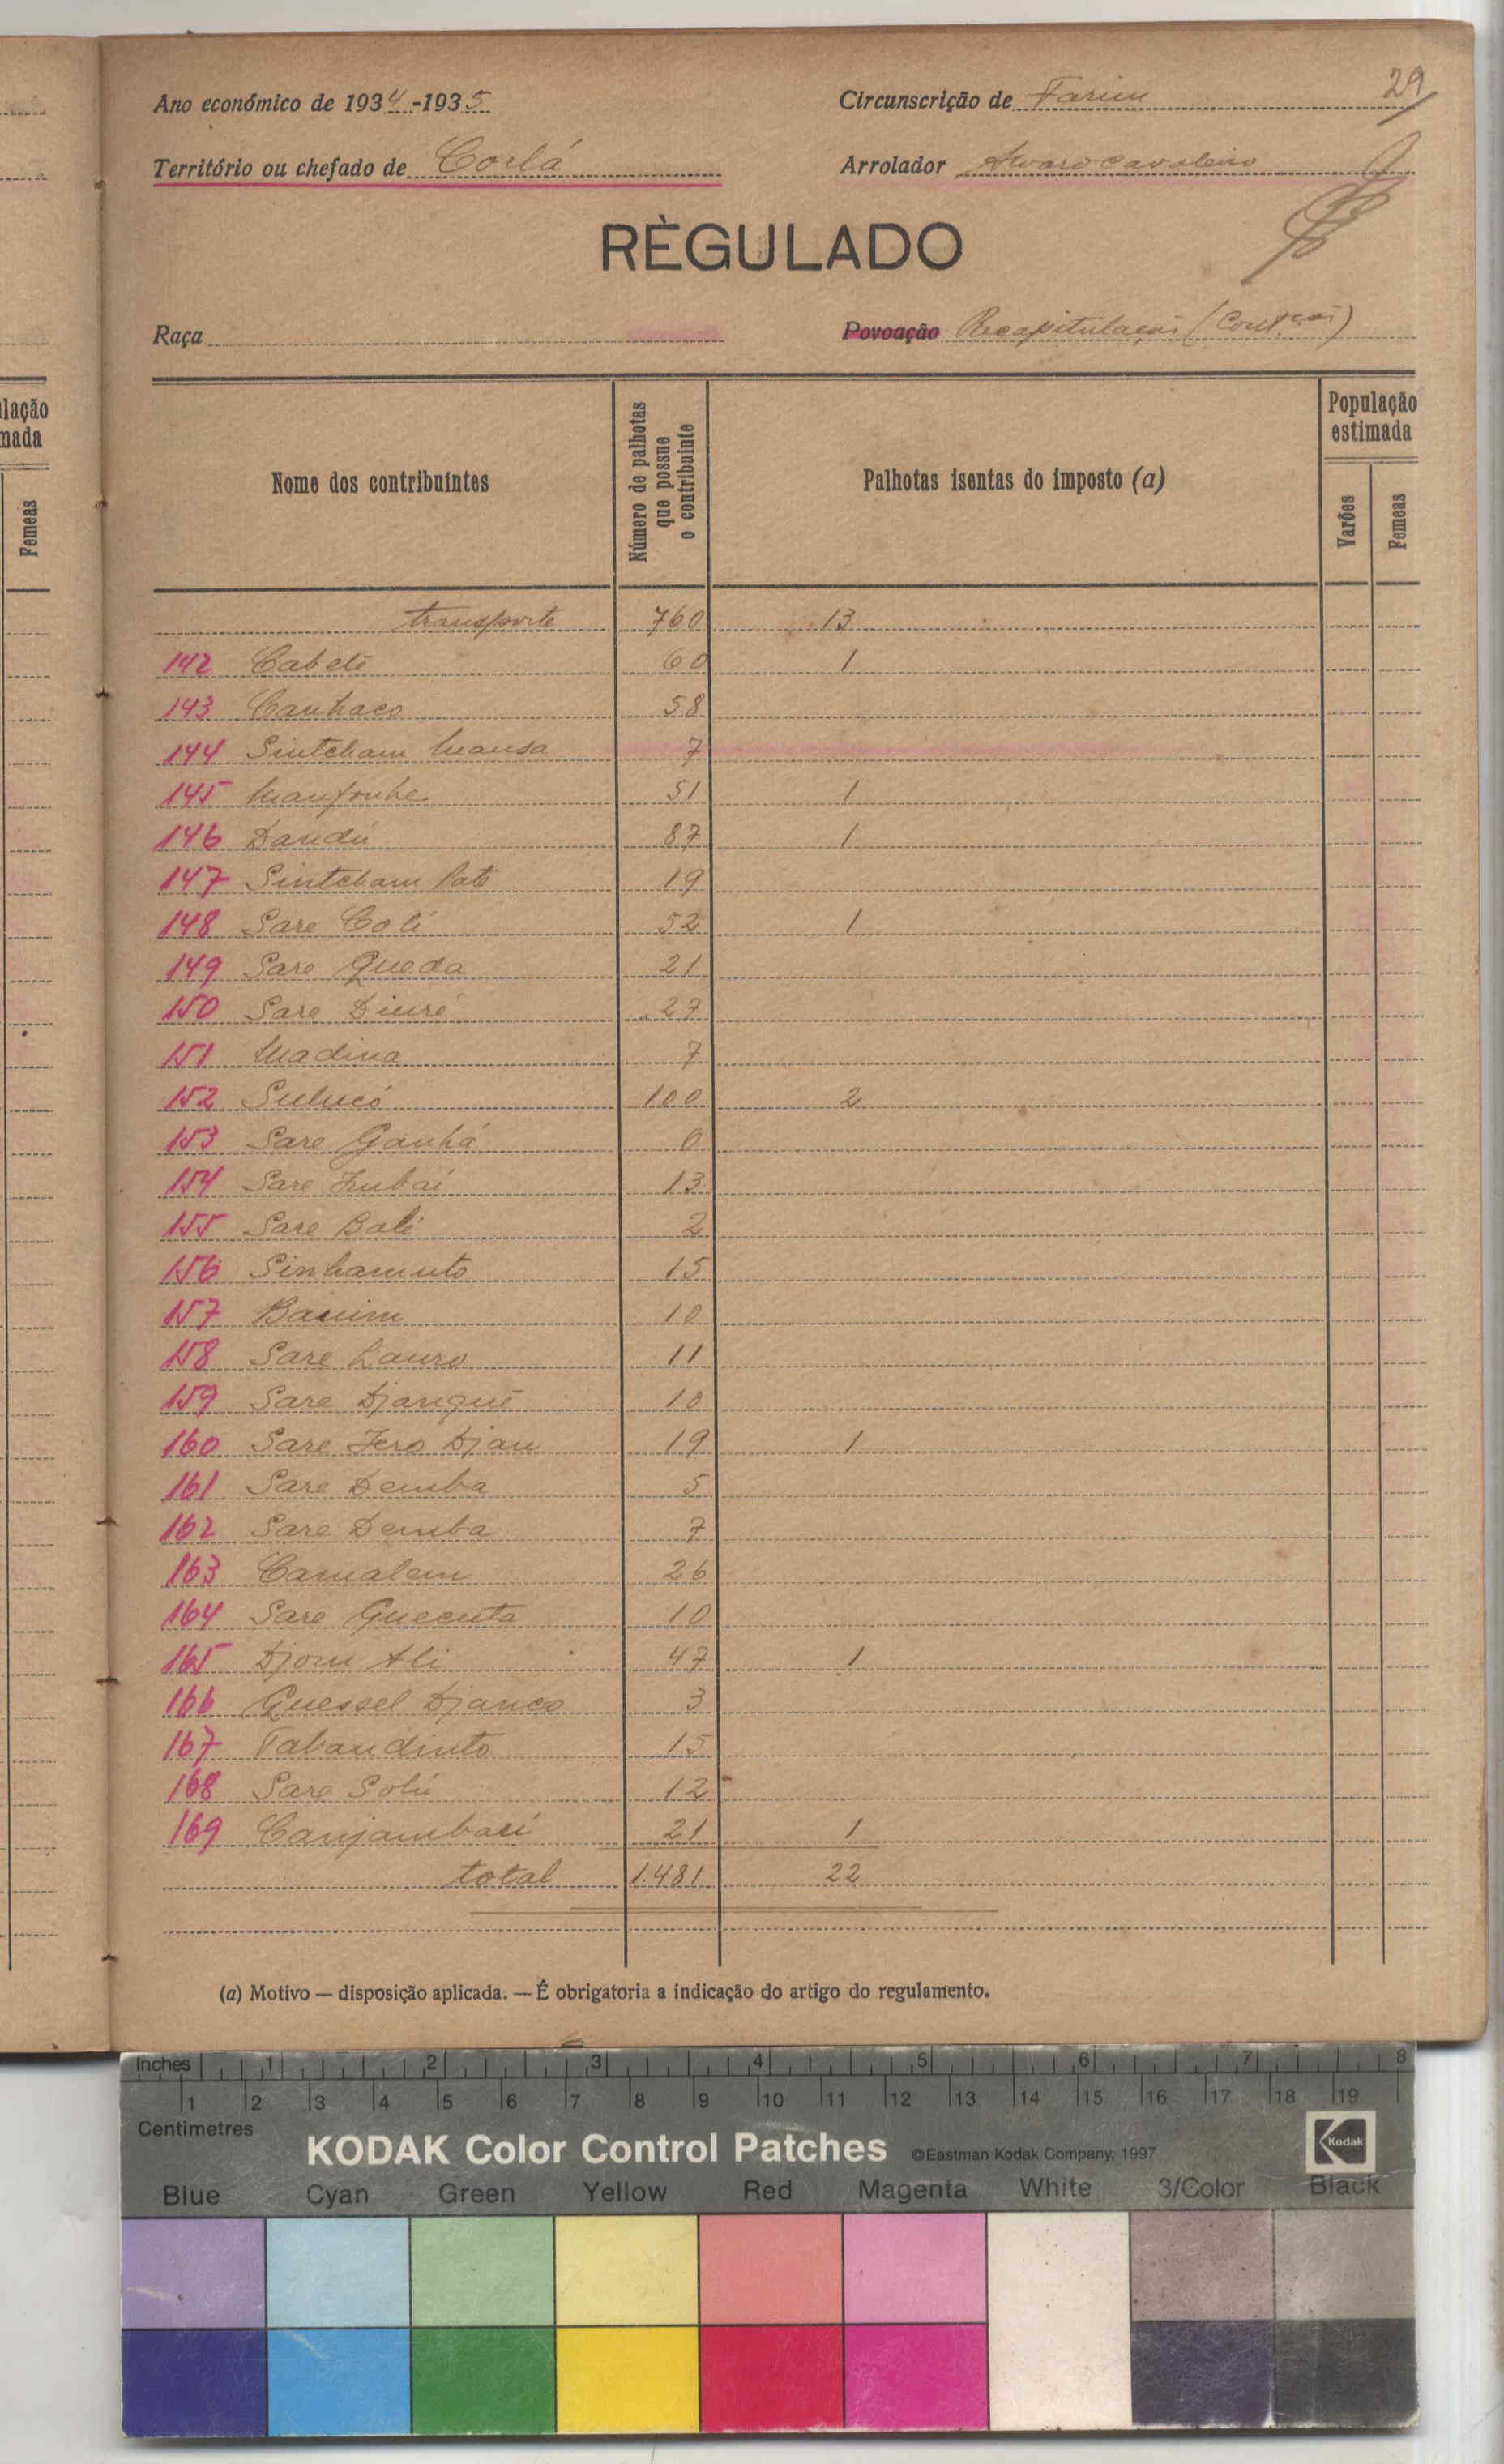 29
Ano económico de 1934-1935 Circunscrição de Farim
Território ou chefado de Corlá Arrolador Alvaro Cavaleiro
RÈGULADO
Raça Povoação Recapitulação (Contção)
lação
nada
Femeas
Nome dos contribuintes
Número de palhotas que possue o contribuinte
Palhotas isentas do imposto (a)
População estimada
Varões
Femeas
transporte 760 13
142 Cabeté 60 1
143 Canhaco 58
144 Sintcham Mansa 7
145 Manfonhe 51 1
146 Dandú 87 1
147 Sintcham Pate 19
148 Sare Coli 52 1
149 Sare Queda 21
150 Sare 27
151 Madina 7
152 Sulucó 100 2
153 Sare Ganhá 6
154 Sare 13
155 Sare Balé 2
156 Sinhamuto 15
157 10
158 Sare Lauro 11
159 Sare Djangué 10
160 Sare Jero Djau 19 1
161 Sare Demba 5
162 Sare Demba 7
163 Camalem 26
164 Sare Quecuta 10
165 Djom Ali 47 1
166 Quessel Djanco 3
167 Tabandinto 15
168 Sare Soliú 12
169 Canjambari 21 1
total 1.481 22
(a) Motivo — disposição aplicada. — É obrigatoria a indicação do artigo do regulamento.
Inches 1 2 3 4 5 6 7 8
1 2 3 4 5 6 7 8 9 10 11 12 13 14 15 16 17 18 19
Centimetres
KODAK Color Control Patches ©Eastman Kodak Company, 1997 Kodak
Blue Cyan Green Yellow Red Magenta White 3/Color Black